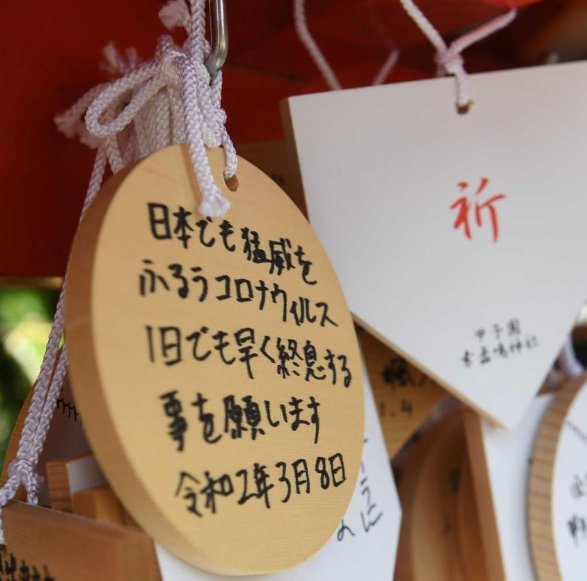 日本でも猛威を
ふるうコロナウィルス
1日でも早く終息する
事を願います
令和2年3月8日
祈
甲子園
素盞嗚神社